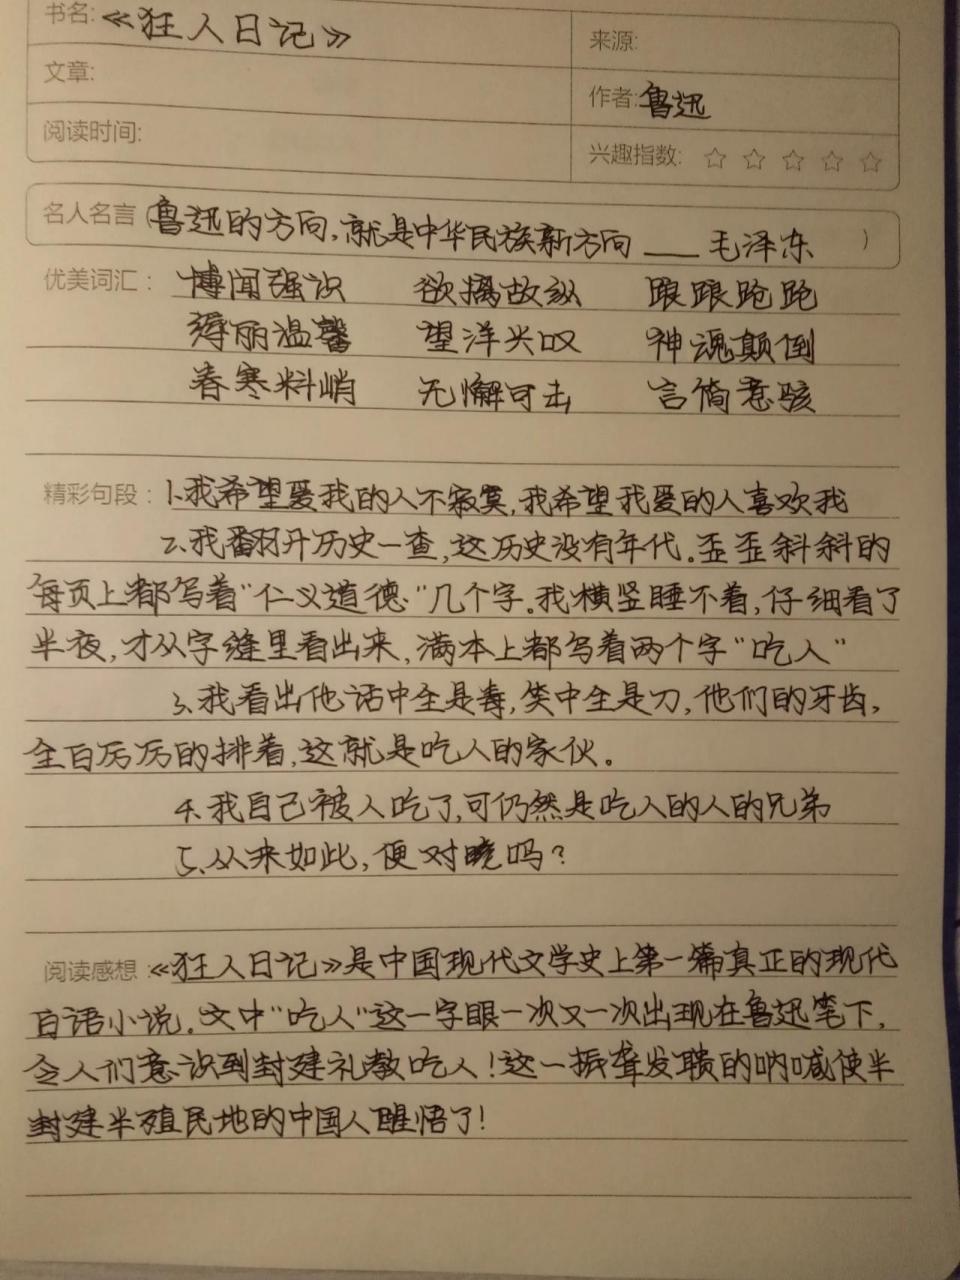 书名: 《狂人日记》
来源:
文章:
作者: 鲁迅
阅读时间:
兴趣指数: ☆ ☆ ☆ ☆ ☆
名人名言 (鲁迅的方向,就是中华民族新方向 —— 毛泽东 )
优美词汇: 博闻强识 欲擒故纵 踉踉跄跄
薄丽温馨 望洋兴叹 神魂颠倒
春寒料峭 无懈可击 言简意骇
精彩句段: 1.我希望爱我的人不寂寞,我希望我爱的人喜欢我
2.我翻开历史一查,这历史没有年代。歪歪斜斜的
每页上都写着"仁义道德"几个字。我横竖睡不着,仔细看了
半夜,才从字缝里看出来,满本上都写着两个字"吃人"
3.我看出他话中全是毒,笑中全是刀,他们的牙齿,
全白厉厉的排着,这就是吃人的家伙。
4.我自己被人吃了,可仍然是吃人的人的兄弟
5.从来如此,便对吗?
阅读感想: 《狂人日记》是中国现代文学史上第一篇真正的现代
白话小说。文中"吃人"这一字眼一次又一次出现在鲁迅笔下,
令人们意识到封建礼教吃人!这一振聋发聩的呐喊使半
封建半殖民地的中国人醒悟了!